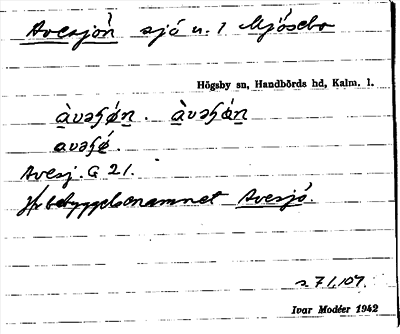 Avesjön sjö n. 1 Mjösebo
Högsby sn, Handbörds hd, Kalm. l.
àvəɧǿn . àvəɧǿn
avəɧǿ .
Avesj. G 21.
Jfr bebyggelsenamnet Avesjö.
s. 71, 107.
Ivar Modéer 1942